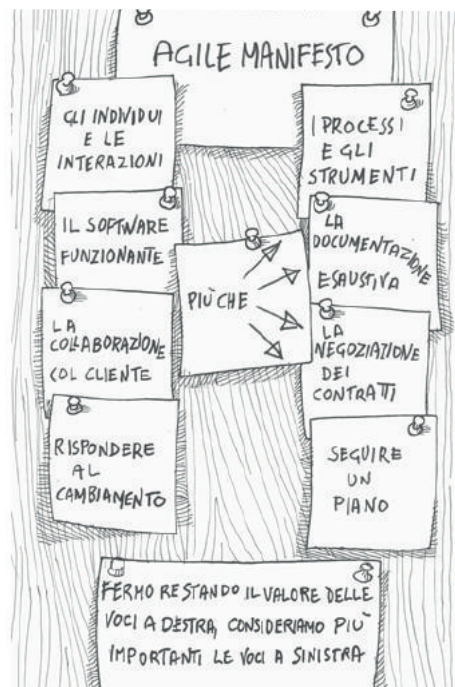 AGILE MANIFESTO
GLI INDIVIDUI
E LE
INTERAZIONI
IL SOFTWARE
FUNZIONANTE
LA
COLLABORAZIONE
COL CLIENTE
RISPONDERE
AL
CAMBIAMENTO
PIÙ CHE
I PROCESSI
E GLI
STRUMENTI
LA
DOCUMENTAZIONE
ESAUSTIVA
LA
NEGOZIAZIONE
DEI
CONTRATTI
SEGUIRE
UN
PIANO
FERMO RESTANDO IL VALORE DELLE
VOCI A DESTRA, CONSIDERIAMO PIÙ
IMPORTANTI LE VOCI A SINISTRA